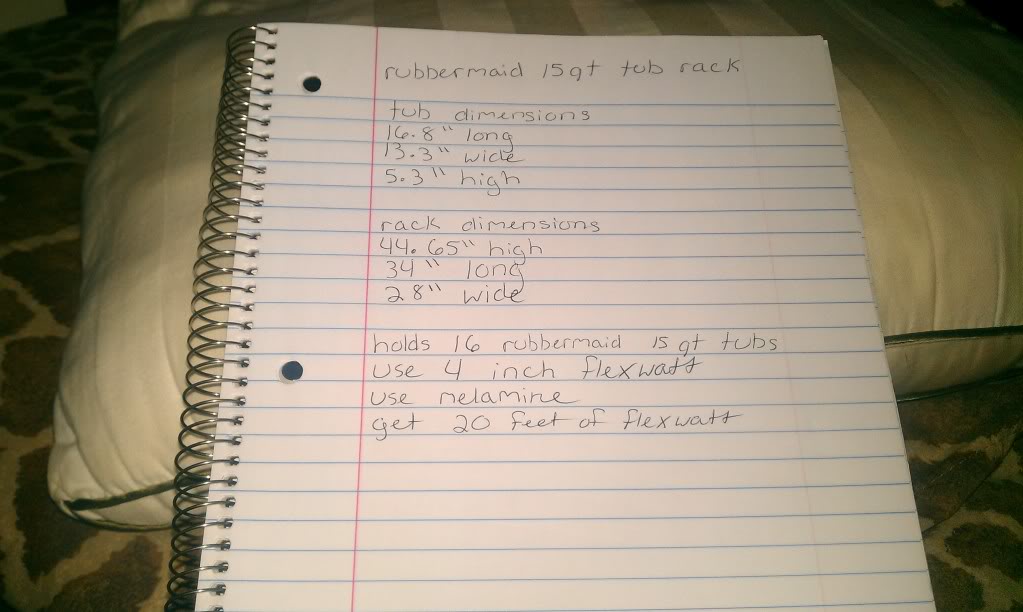 rubbermaid 15qt tub rack
tub dimensions
16.8" long
13.3" wide
5.3" high
rack dimensions
44.65" high
34" long
28" wide
holds 16 rubbermaid 15 qt tubs
use 4 inch flexwatt
use melamine
get 20 feet of flexwatt